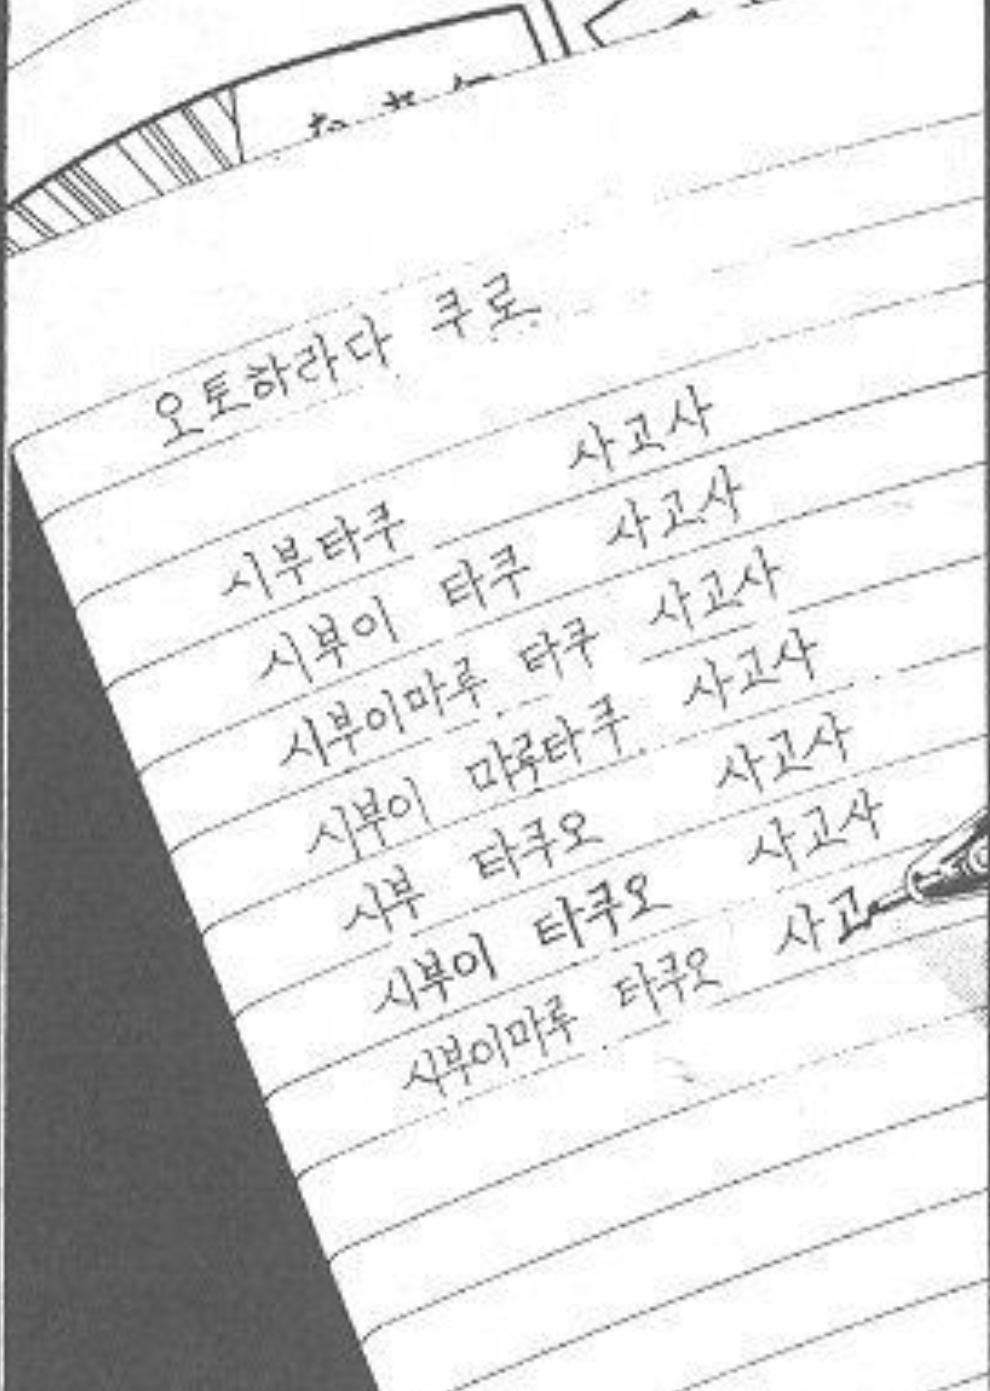 오토하라다 쿠로
시부타쿠 사고사
시부이 타쿠 사고사
시부이마루 타쿠 사고사
시부이 마루타쿠 사고사
시부 타쿠오 사고사
시부이 타쿠오 사고사
시부이마루 타쿠오 사고